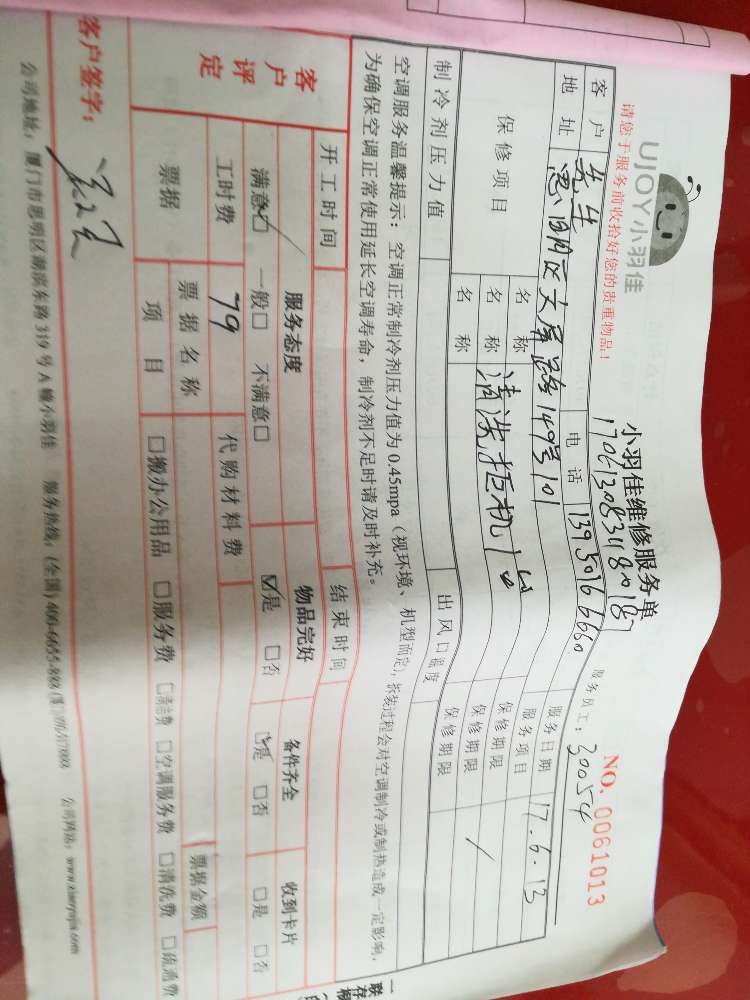 UJOY小羽佳
小羽佳维修服务单
NO. 0061013
请您于服务前收拾好您的贵重物品！
服务员工：30054
客户 先生 电话 服务日期 17.6.13
地址 思明区 149号101 服务项目
保修项目 名称 保修期限
名称 清洗挂机1台 保修期限
名称 保修期限
制冷剂压力值 出风口温度
空调服务温馨提示：空调正常制冷剂压力值为0.45mpa（视环境、机型而定），拆装过程会对空调制冷或制热造成一定影响，
为确保空调正常使用延长空调寿命，制冷剂不足时请及时补充。
开工时间 结束时间
客户评定
服务态度 物品完好 备件齐全 收到卡片
满意□ 一般□ 不满意□ ☑是 □否 ☑是 □否 □是 □否
工时费 79 代购材料费
票据 票据名称 票据金额
项目 □搬办公用品 □服务费 □清洁费 □空调服务费 □清洗费 □疏通费
客户签字：
公司地址：厦门市思明区湖滨东路319号A幢小羽佳 服务热线：(全国) 400-6655-888 公司网站：www.xiaoyujia.com
一联存根